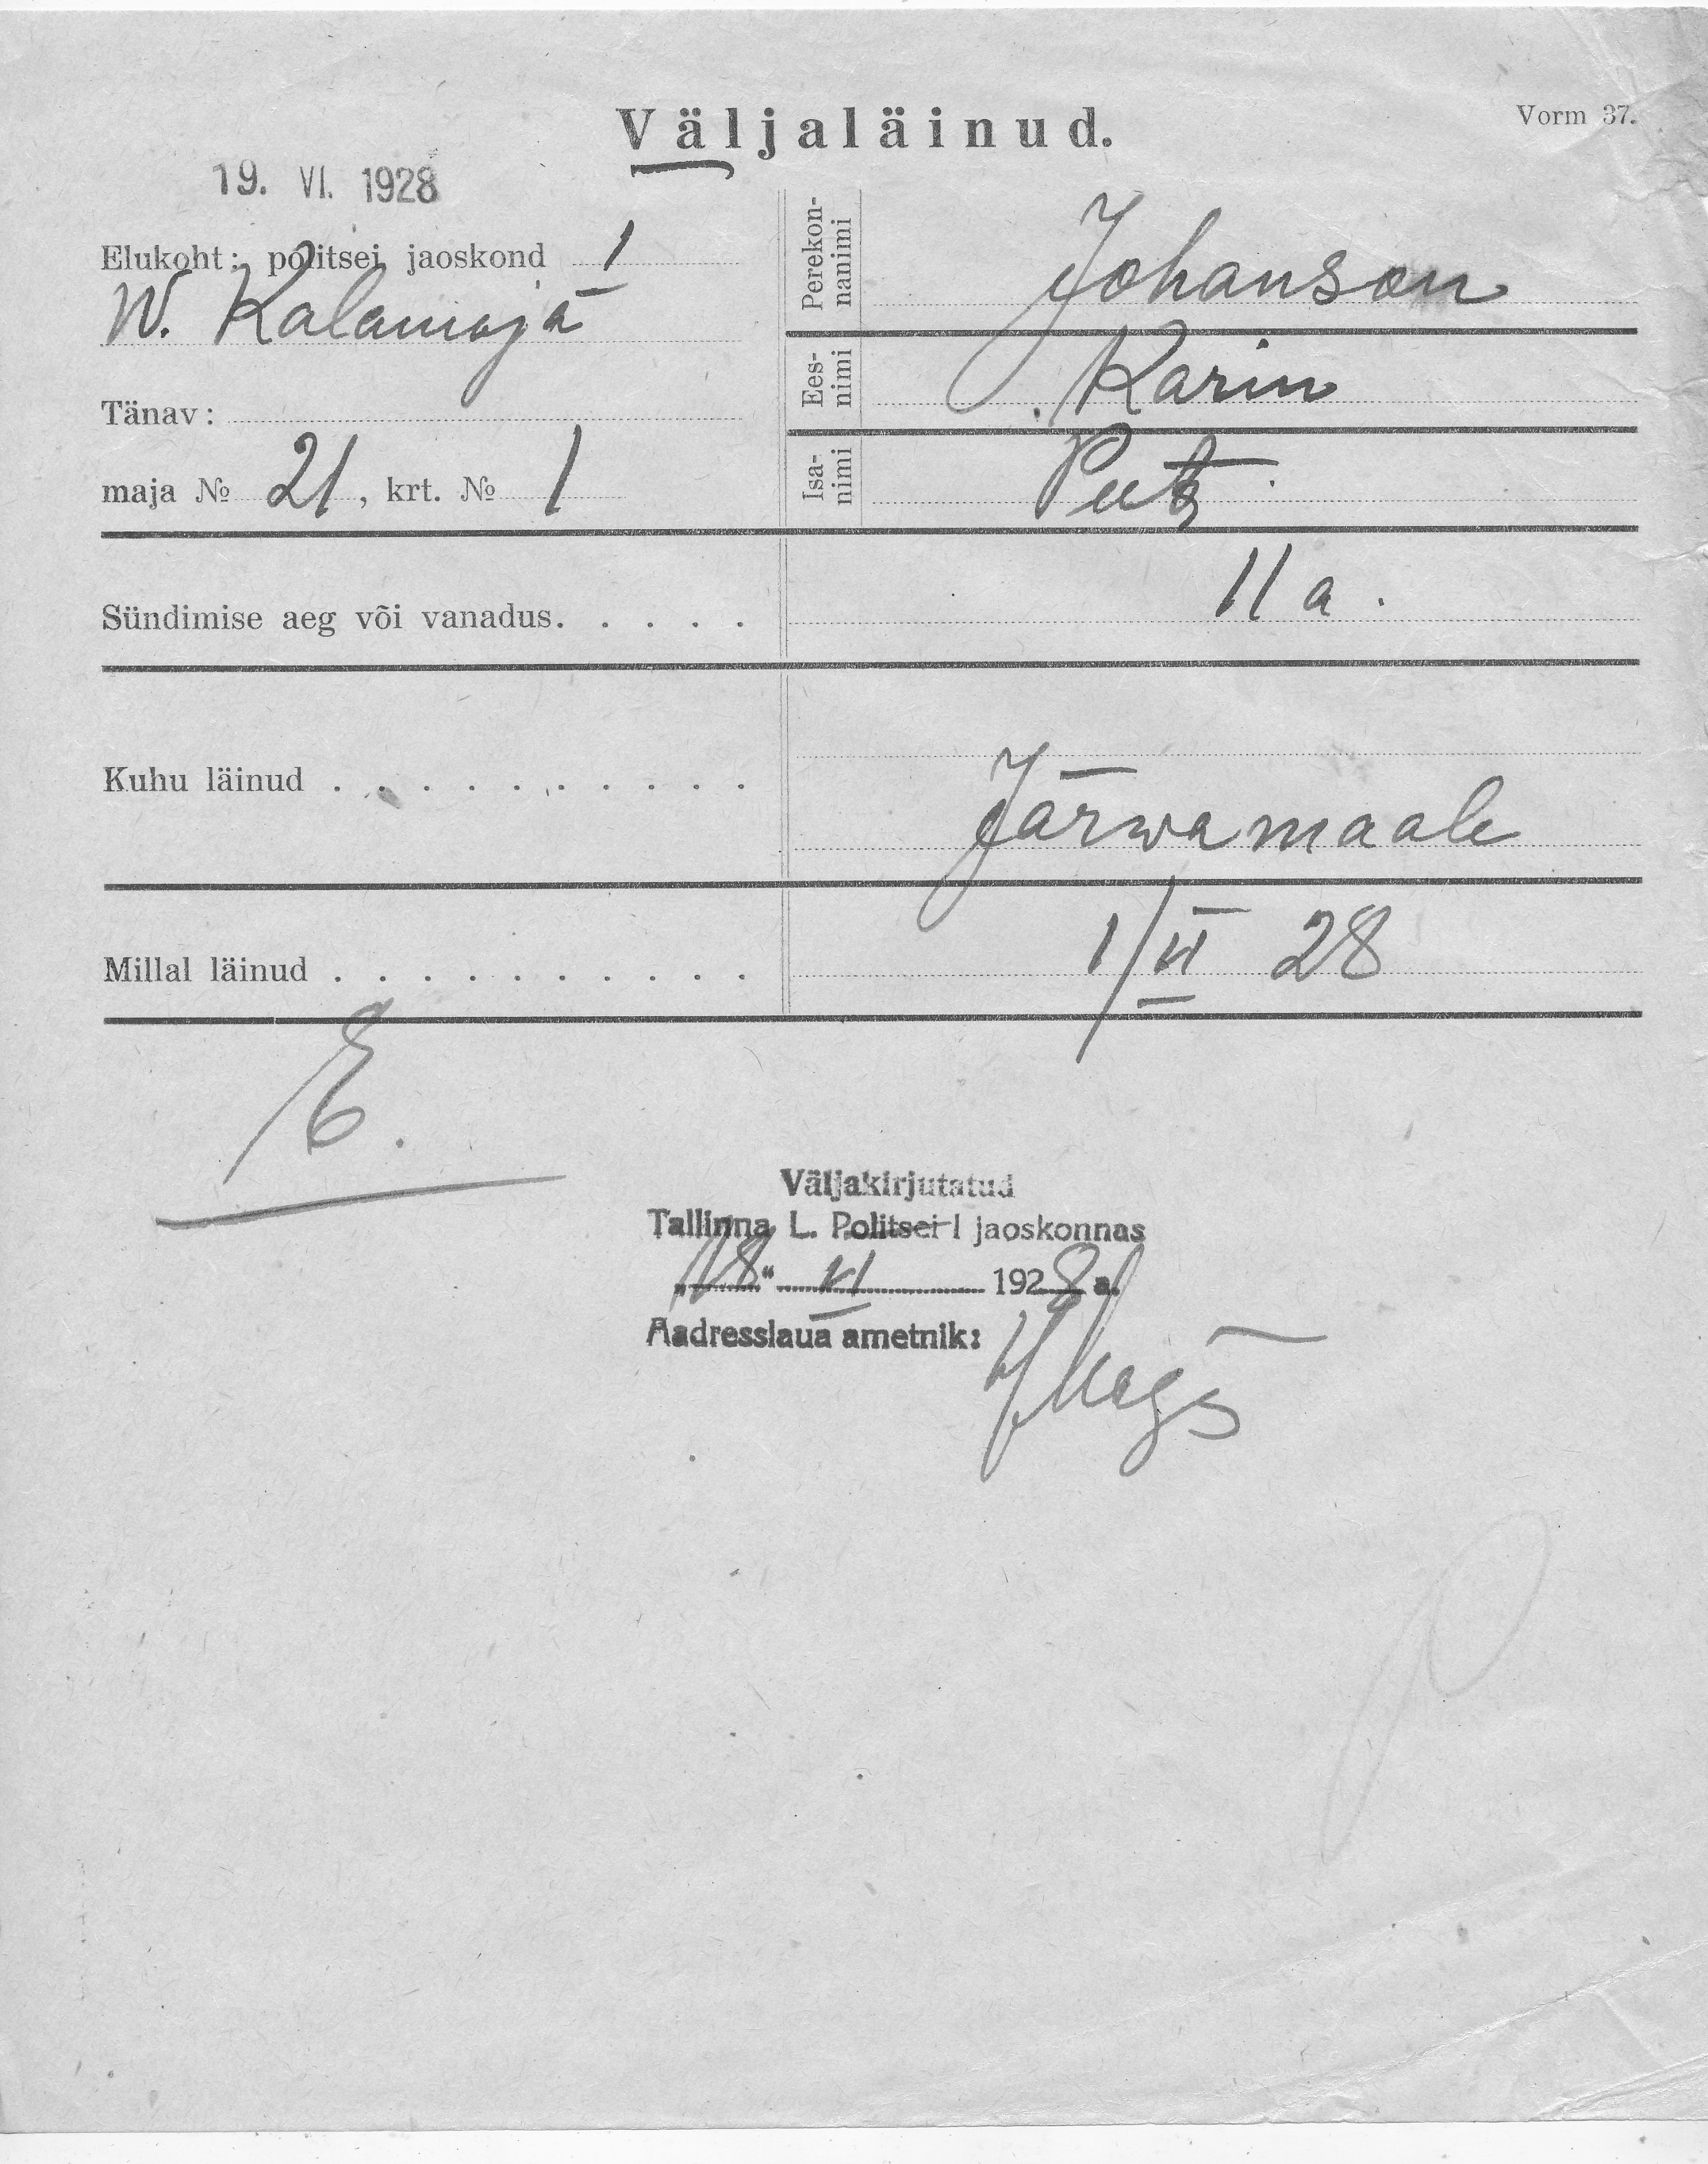 Väljaläinud.
Vorm 37.
19. VI. 1928
Elukoht: politsei jaoskond 1
W. Kalamaja
Tänav:
maja № 21, krt. № 1
Perekon-
nanimi
Johanson
Ees-
nimi
Karin
Isa-
nimi
Sündimise aeg või vanadus. . . . .
11 a.
Kuhu läinud . . . . . . . . . .
Järwamaale
Millal läinud . . . . . . . . . .
1/VI 28
E.
Väljakirjutatud
Tallinna L. Politsei I jaoskonnas
„18“ VI 1928 a.
Aadresslaua ametnik: